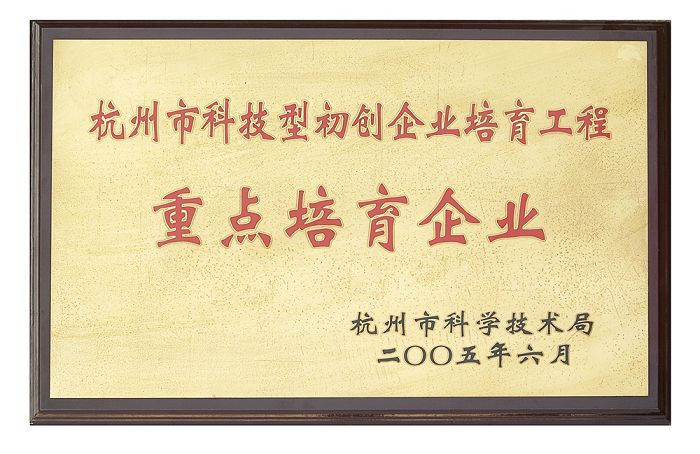 杭州市科技型初创企业培育工程
重点培育企业
杭州市科学技术局
二〇〇五年六月